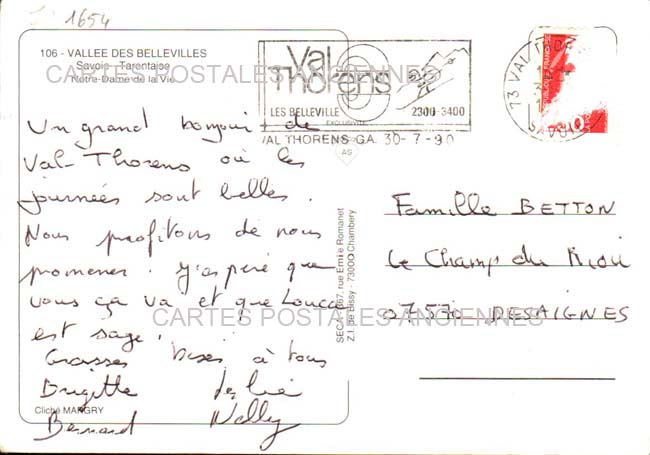 1654
106 - VALLEE DES BELLEVILLES
Savoie - Tarentaise
Notre-Dame de la Vie
CARTES POSTALES ANCIENNES
Val Thorens
LES BELLEVILLE 2300-3400
VAL THORENS GA 30-7-90
73 VAL THORENS
SAVOIE
Un grand bonjour de
Val-Thorens où les
journées sont belles.
Nous profitons de nous
promener. J'espère que
vous ça va et que
est sage.
Grosses bises à tous
Brigitte
Bernard Nelly
Cliché MARGRY
SECA - 667, rue Emile Romanet
Z.I. de Bissy - 73000 Chambery
Famille BETTON
Le Champ du Riou
07570 DESAIGNES
CARTES POSTALES ANCIENNES